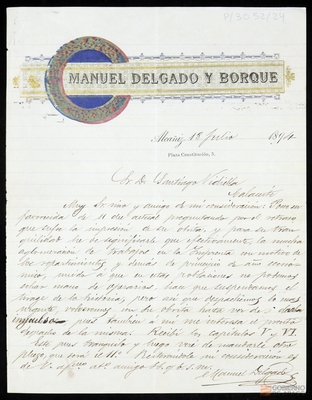 P/3052/24
MANUEL DELGADO Y BORQUE
Alcañiz 18 Julio 1894
Plaza Constitución, 5.
Sr. D. Santiago Vidiella
Calaceite
Muy Sr. mio y amigo de mi consideracion: Poseo su
favorecida de 11 del actual preguntando por el retraso
que sufre la impresion de su obrita; y para su tran-
quilidad he de significarle que efectivamente la mucha
aglomeracion de trabajos en la Imprenta con motivo de
los repartimientos y demas de principio de año econó-
mico, unido a que en estas poblaciones no podemos
echar mano de operarios, hace que suspendamos el
tirage de la historia; pero asi que despachemos lo mas
urgente volveremos con su obrita hasta ver de
pues tambien a mi me interesa el pronto
de la misma. Recibi los capitulos V y VI.
Este pues tranquilo y luego veré de mandarle otro
pliego que será el 11º. Reiterandole mi consideracion es
de V. afmo. atº amigo q. b. s. m.
Manuel Delgado
GOBIERNO